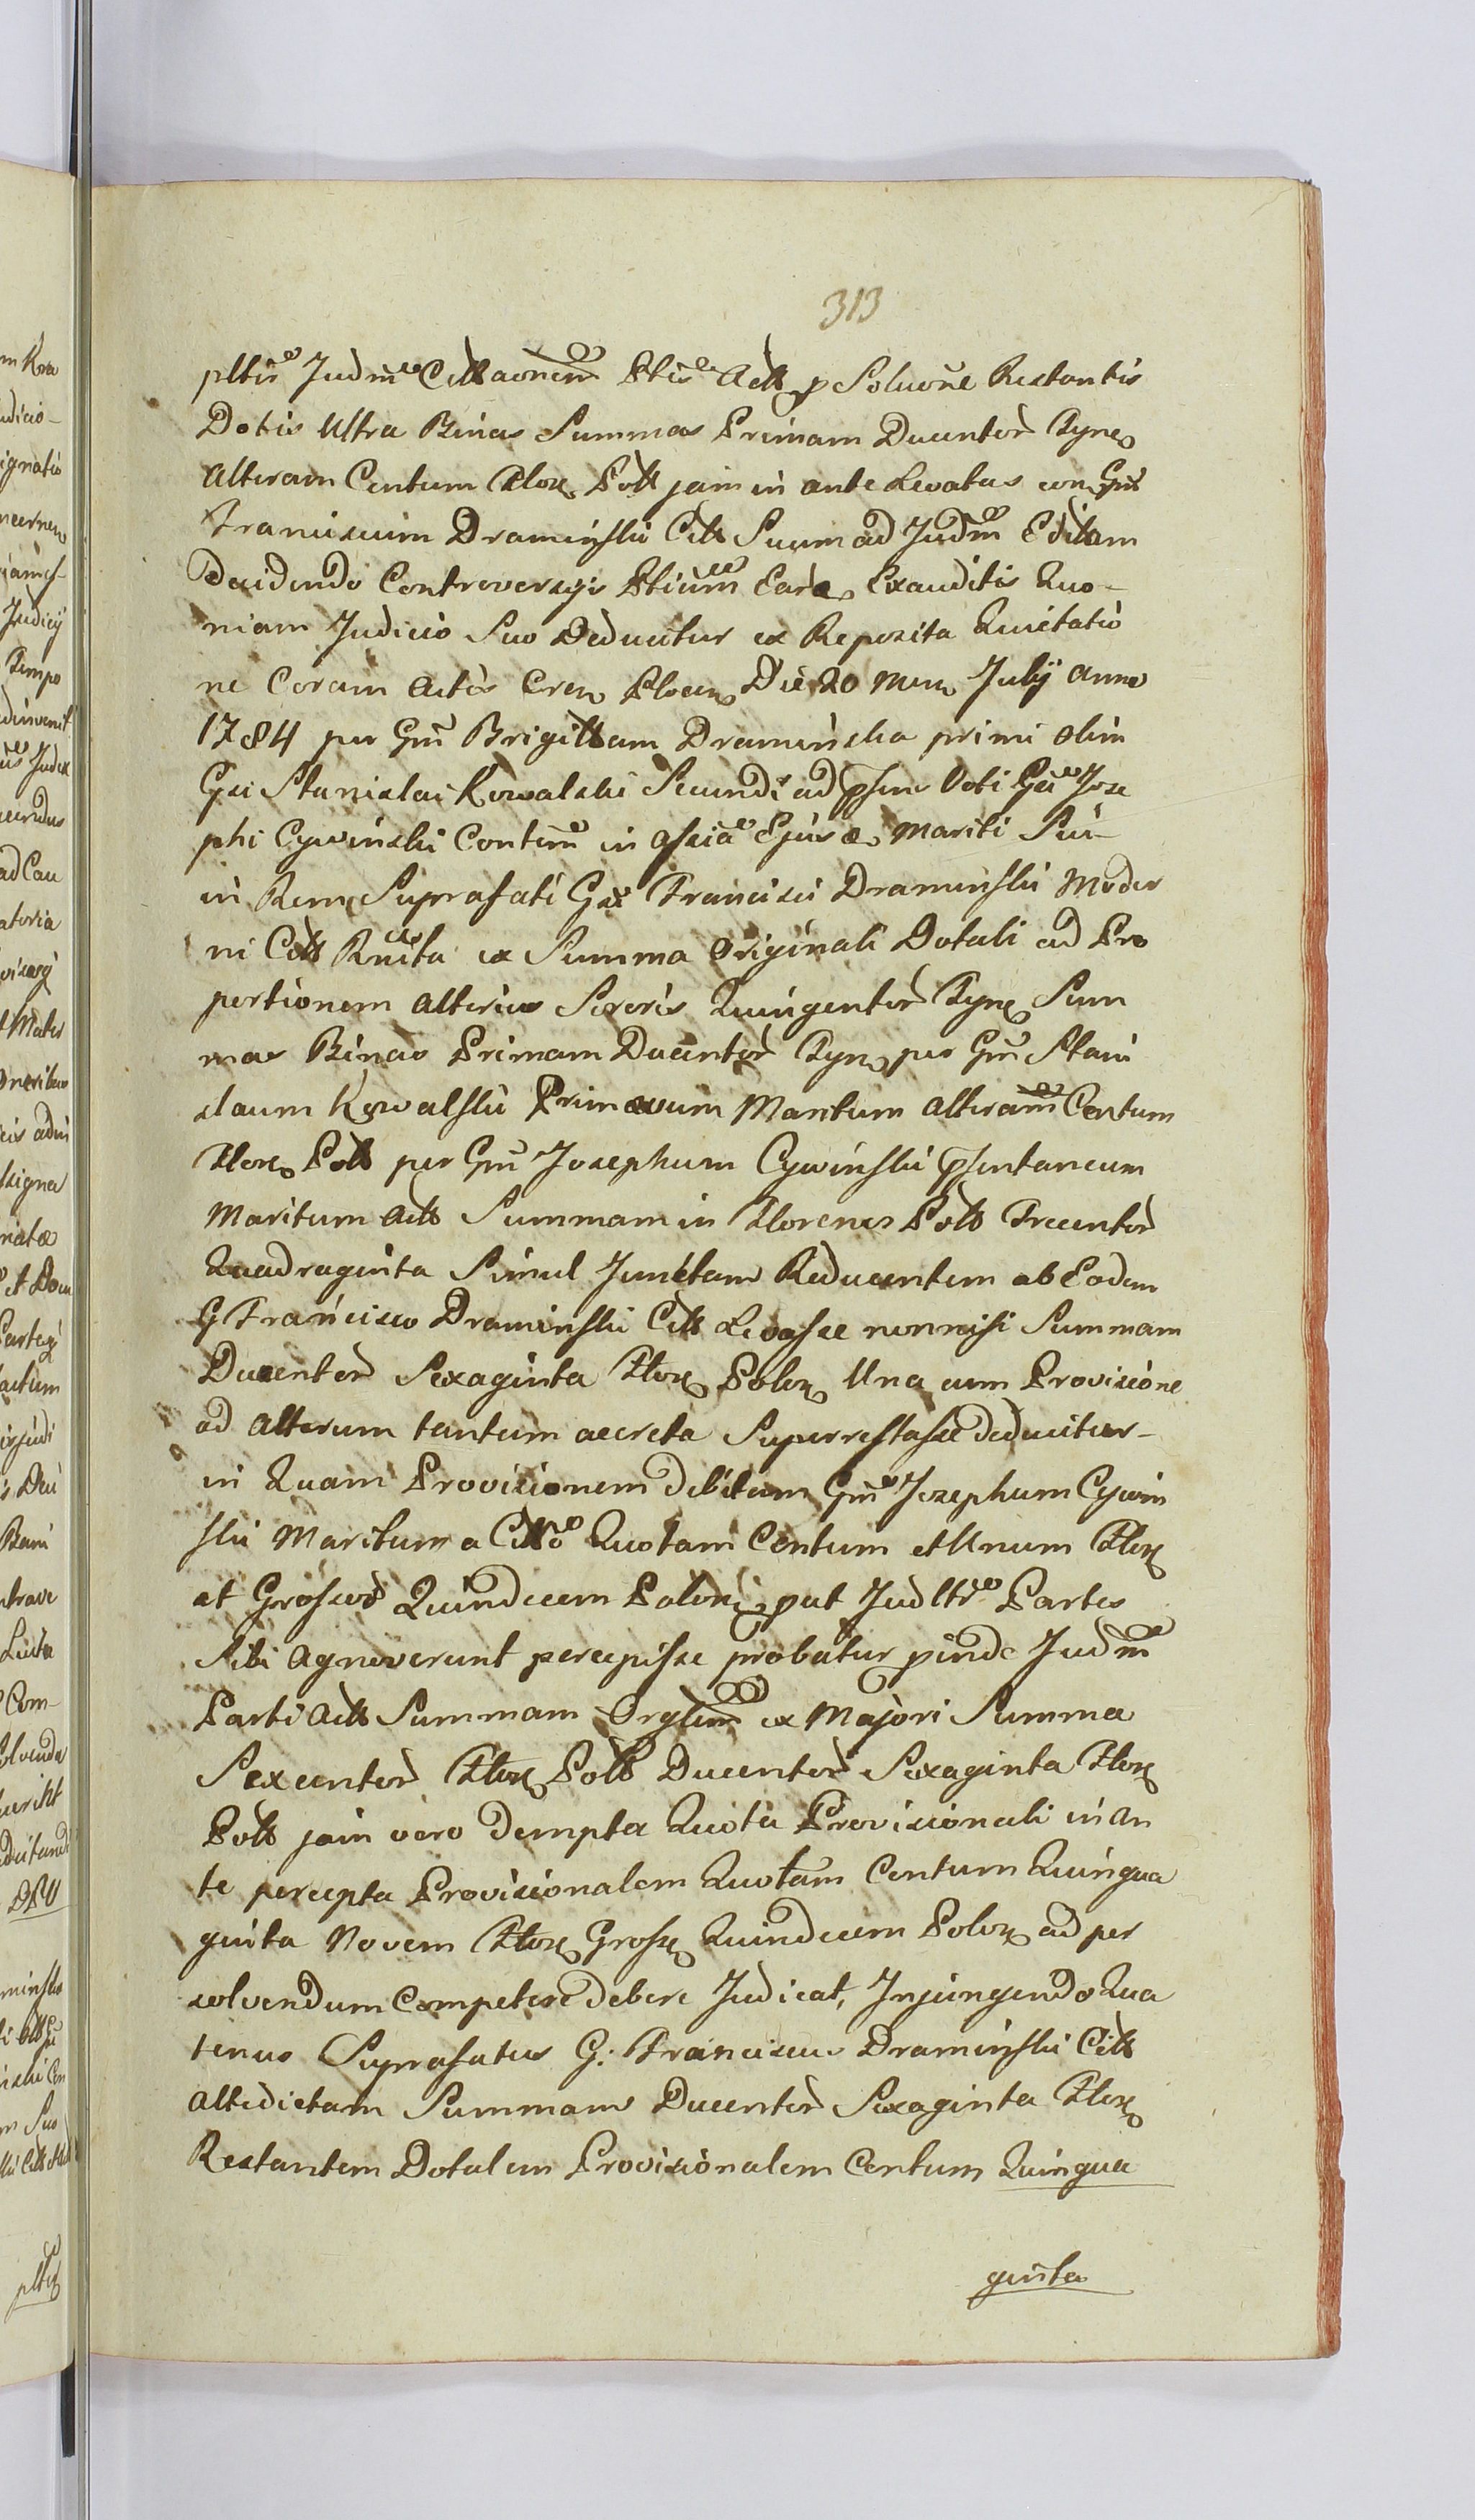 313
pltis Judm Citt aonem Ptis Actt p Soluone Restantis
Dotis Ultra Binas Summas Primam Ducentor Tynf
Alteram Centum Flor Poll jam in ante Levatas con Gm
Franciscum Draminski Citt Suum ad Judm Editam
Decidendo Controversijs Ptium Eard Exauditis Quo-
niam Judicio Suo Deducitur ex Reposita Quietatio
ne Coram Actis Cren Plocen Die 20 Men July Anno
1784 per Gm Brigittam Draminska primi olim
Gsi Stanislai Kowalski Secundi ad psens Voti Gsi Jose
phi Cywinski Contem in Assia Ejusd Mariti Sui
in Rem Suprafati Gsi Francisci Draminski Moder
ni Citt Rnita ex Summa Originali Dotali ad Pro
portionem Alterius Sororis Quingentor Tynf Sum
mas Binas Primam Ducentor Tynf per Gm Stani
slaum Kowalski Primævum Maritum Alteram Centum
Flor Poll per Gm Josephum Cywinski psentaneum
Maritum Actt Summam in Florenos Poll Trecentor
Quadraginta Simul Junctam Reducentem ab Eodem
G Francisco Draminski Citt Levasse nonnisi Summam
Ducentor Sexaginta Flor Polon Una cum Provisione
ad Alterum tantum accreta Superrestasse deducitur-
in Quam Provisionem debitam Gm Josephum Cywin
ski Maritum a Citto Quotam Centum et Unum Flor
et Grossos Quindecem Poloni put Judltr Partes
Sibi Agnoverunt percepisse probatur pinde Judm
Parti Actt Summam Orglem ex Majori Summa
Sexcentor Flor Poll Ducentor Sexaginta Flor
Poll jam vero dempta Quota Provisionali in an
te percepta Provisionalem Quotam Centum Quinqua
ginta Novem Flor Gross Quindecem Polon ad per
solvendum Competere debere Judicat, Injungendo Qua
tenus Suprafatus G: Franciscus Draminski Citt
Altedictam Summam Ducentor Sexaginta Flor
Restantem Dotalem Provisionalem Centum Quinqua
ginta